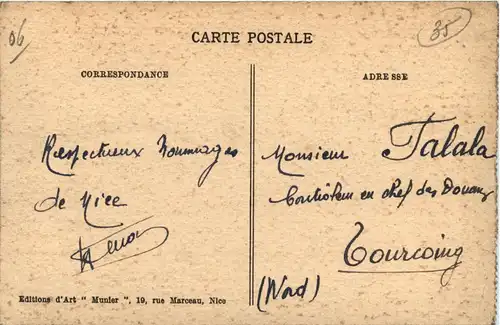 06
35
CARTE POSTALE
CORRESPONDANCE
ADRESSE
Respectueux hommages
de Nice
Monsieur Talala
en chef des Douanes
Tourcoing
(Nord)
Editions d'Art " Munier ", 19, rue Marceau, Nice